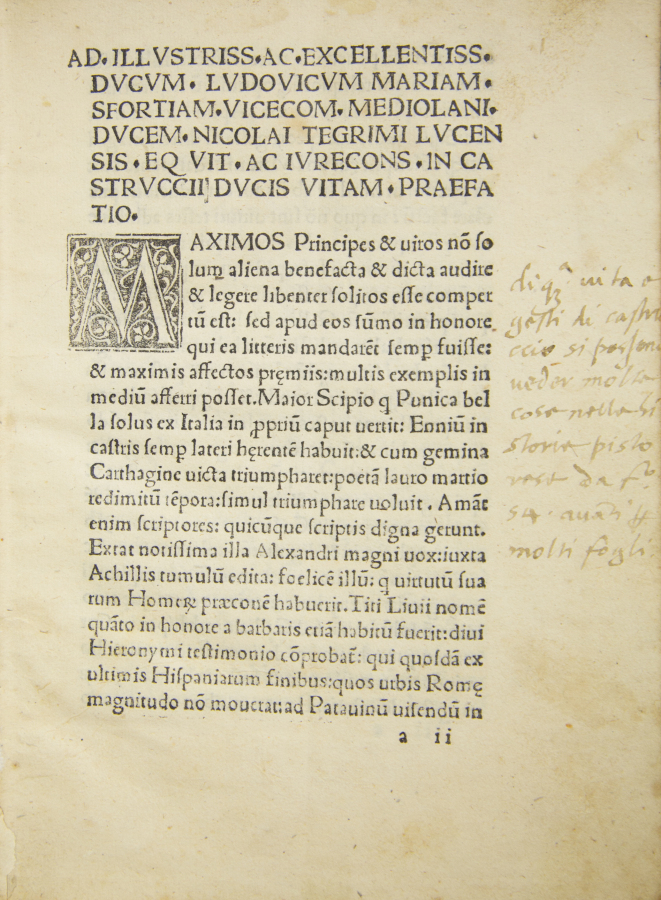 AD.ILLVSTRISS.AC.EXCELLENTISS.
DVCVM. LVDOVICVM MARIAM.
SFORTIAM.VICECOM.MEDIOLANI.
DVCEM.NICOLAI TEGRIMI LVCEN
SIS.EQ VIT.AC IVRECONS.IN CA
STRVCCII DVCIS VITAM.PRAEFA
TIO.
MAXIMOS Principes & uiros nō so
lum aliena benefacta & dicta audire
& legere libenter solitos esse comper
tū est: sed apud eos sūmo in honore
qui ea litteris mandarēt semꝑ fuisse:
& maximis affectos pręmiis:multis exemplis in
mediū afferri posset.Maior Scipio q Punica bel
la solus ex Italia in ꝓpriū caput uertit: Enniū in
castris semꝑ lateri hęrentē habuit:& cum gemina
Carthagine uicta triumpharet:poetā lauro martio
redimitū tēpora:simul triumphare uoluit. Amāt
enim scriptores: quicūque scriptis digna gerunt.
Extat notissima illa Alexandri magni uox:iuxta
Achillis tumulū edita: foelicē illū: q uirtutū sua
rum Homeꝝ præconē habuerit.Titi Liuii nomē
quāto in honore a barbaris etiā habitū fuerit:diui
Hieronymi testimonio cōprobat̄: qui quosdā ex
ultimis Hispaniarum finibus:quos urbis Romę
magnitudo nō mouerat:ad Patauinū uisendū in
a ii
uita e
gesti di castru
ccio si possono
ueder molte
cose nelle hi
storie pisto
rese da
molti fogli